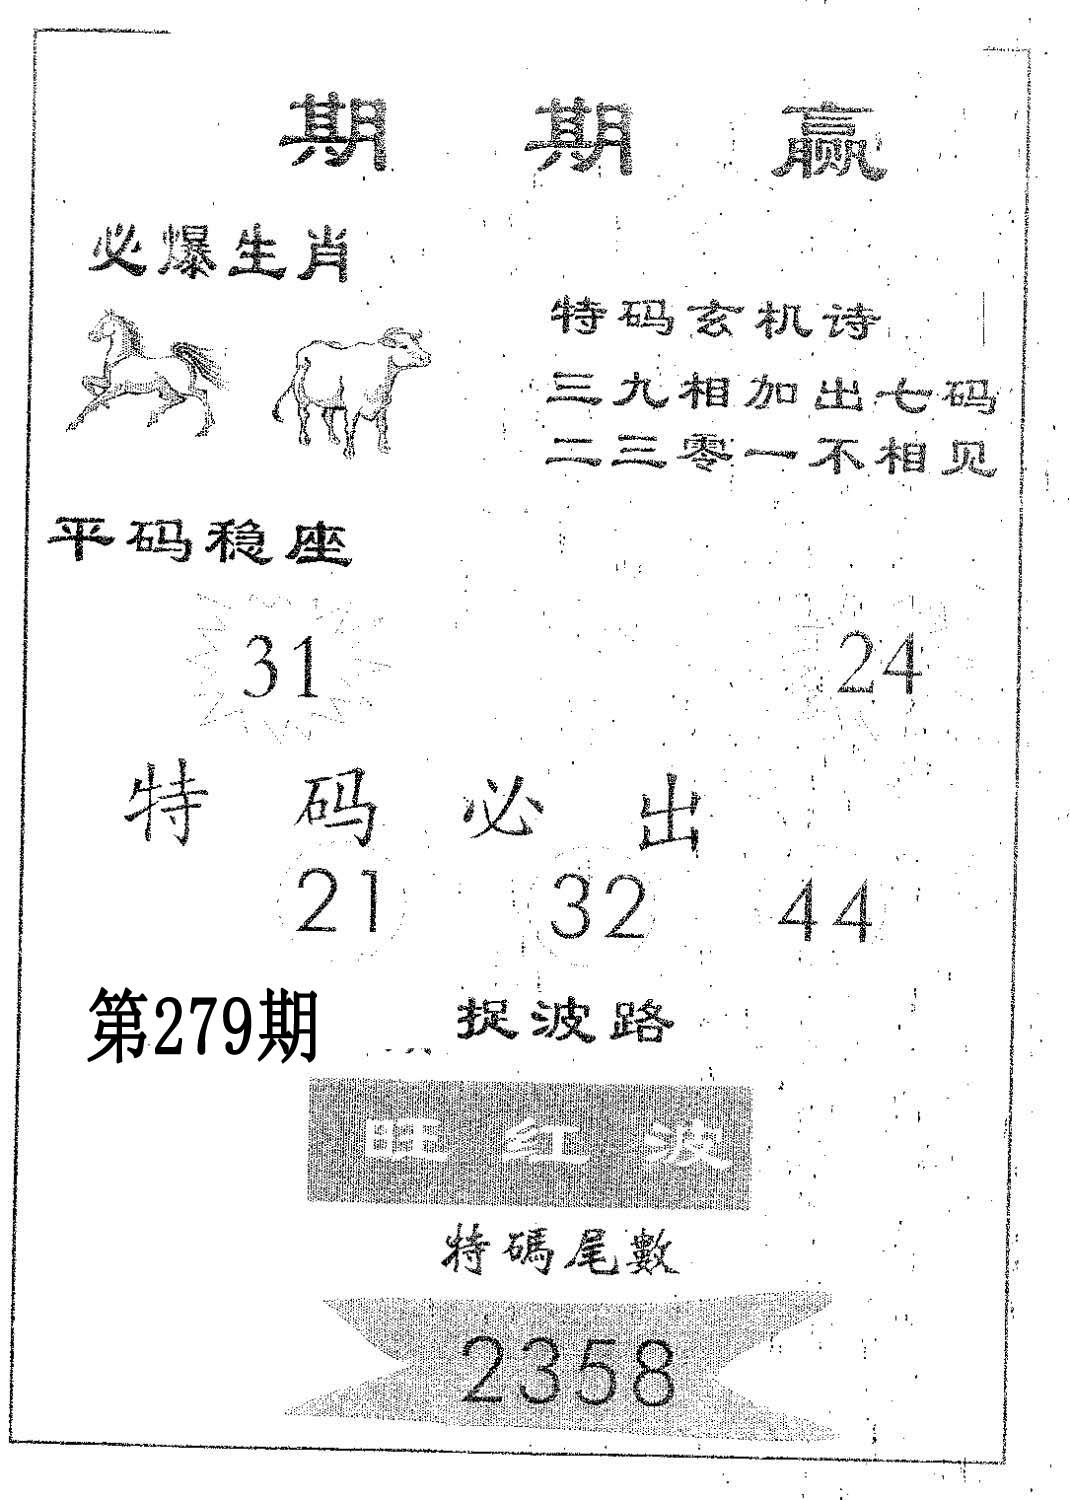 期期赢
必爆生肖
特码玄机诗
三九相加出七码
二三零一不相见
平码稳座
31 24
特码必出
21 32 44
第279期 捉波路
旺红波
特碼尾數
2358